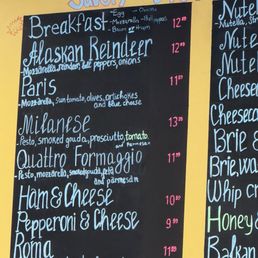 Breakfast -Egg -Onions
-Mozzarella
-Bacon or Ham 12.00
Alaskan Reindeer 12
-Mozzarella, reindeer, bell peppers, onions
Paris 11
-Mozzarella, sun tomato, olives, artichokes
and blue cheese
Milanese 13
-Pesto, smoked gouda, prosciutto, tomato
and Parmesan
Quattro Formaggio 11
-Pesto, mozzarella, smoked gouda, feta
and parmesan
Ham & Cheese 10
Pepperoni & Cheese 9
Roma 11
Nutella
Nutella,
Nutell
Nutell
Cheese
Cheesec
Brie &
Brie, wa
Whip cr
Honey &
Balkan